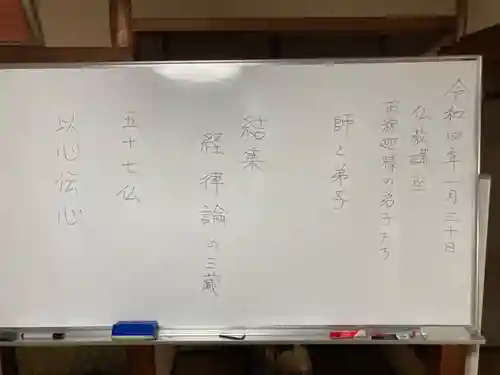 令和四年一月三十日
仏教講座
お釈迦様の弟子たち
師と弟子
結集
経律論の三蔵
五十七仏
以心伝心